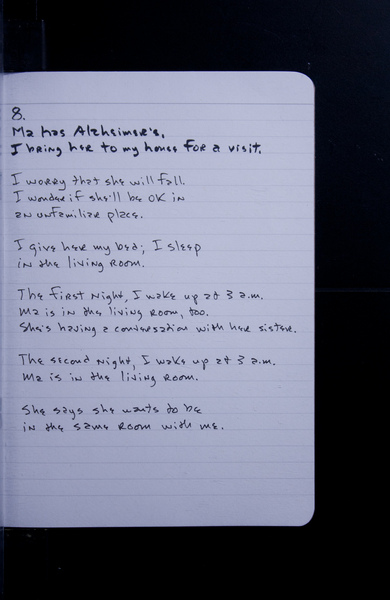 8.
Ma has Alzheimer's.
I bring her to my house for a visit.
I worry that she will fall.
I wonder if she'll be OK in
an unfamiliar place.
I give her my bed; I sleep
in the living room.
The first night, I wake up at 3 a.m.
Ma is in the living room, too.
She's having a conversation with her sister.
The second night, I wake up at 3 a.m.
Ma is in the living room.
She says she wants to be
in the same room with me.